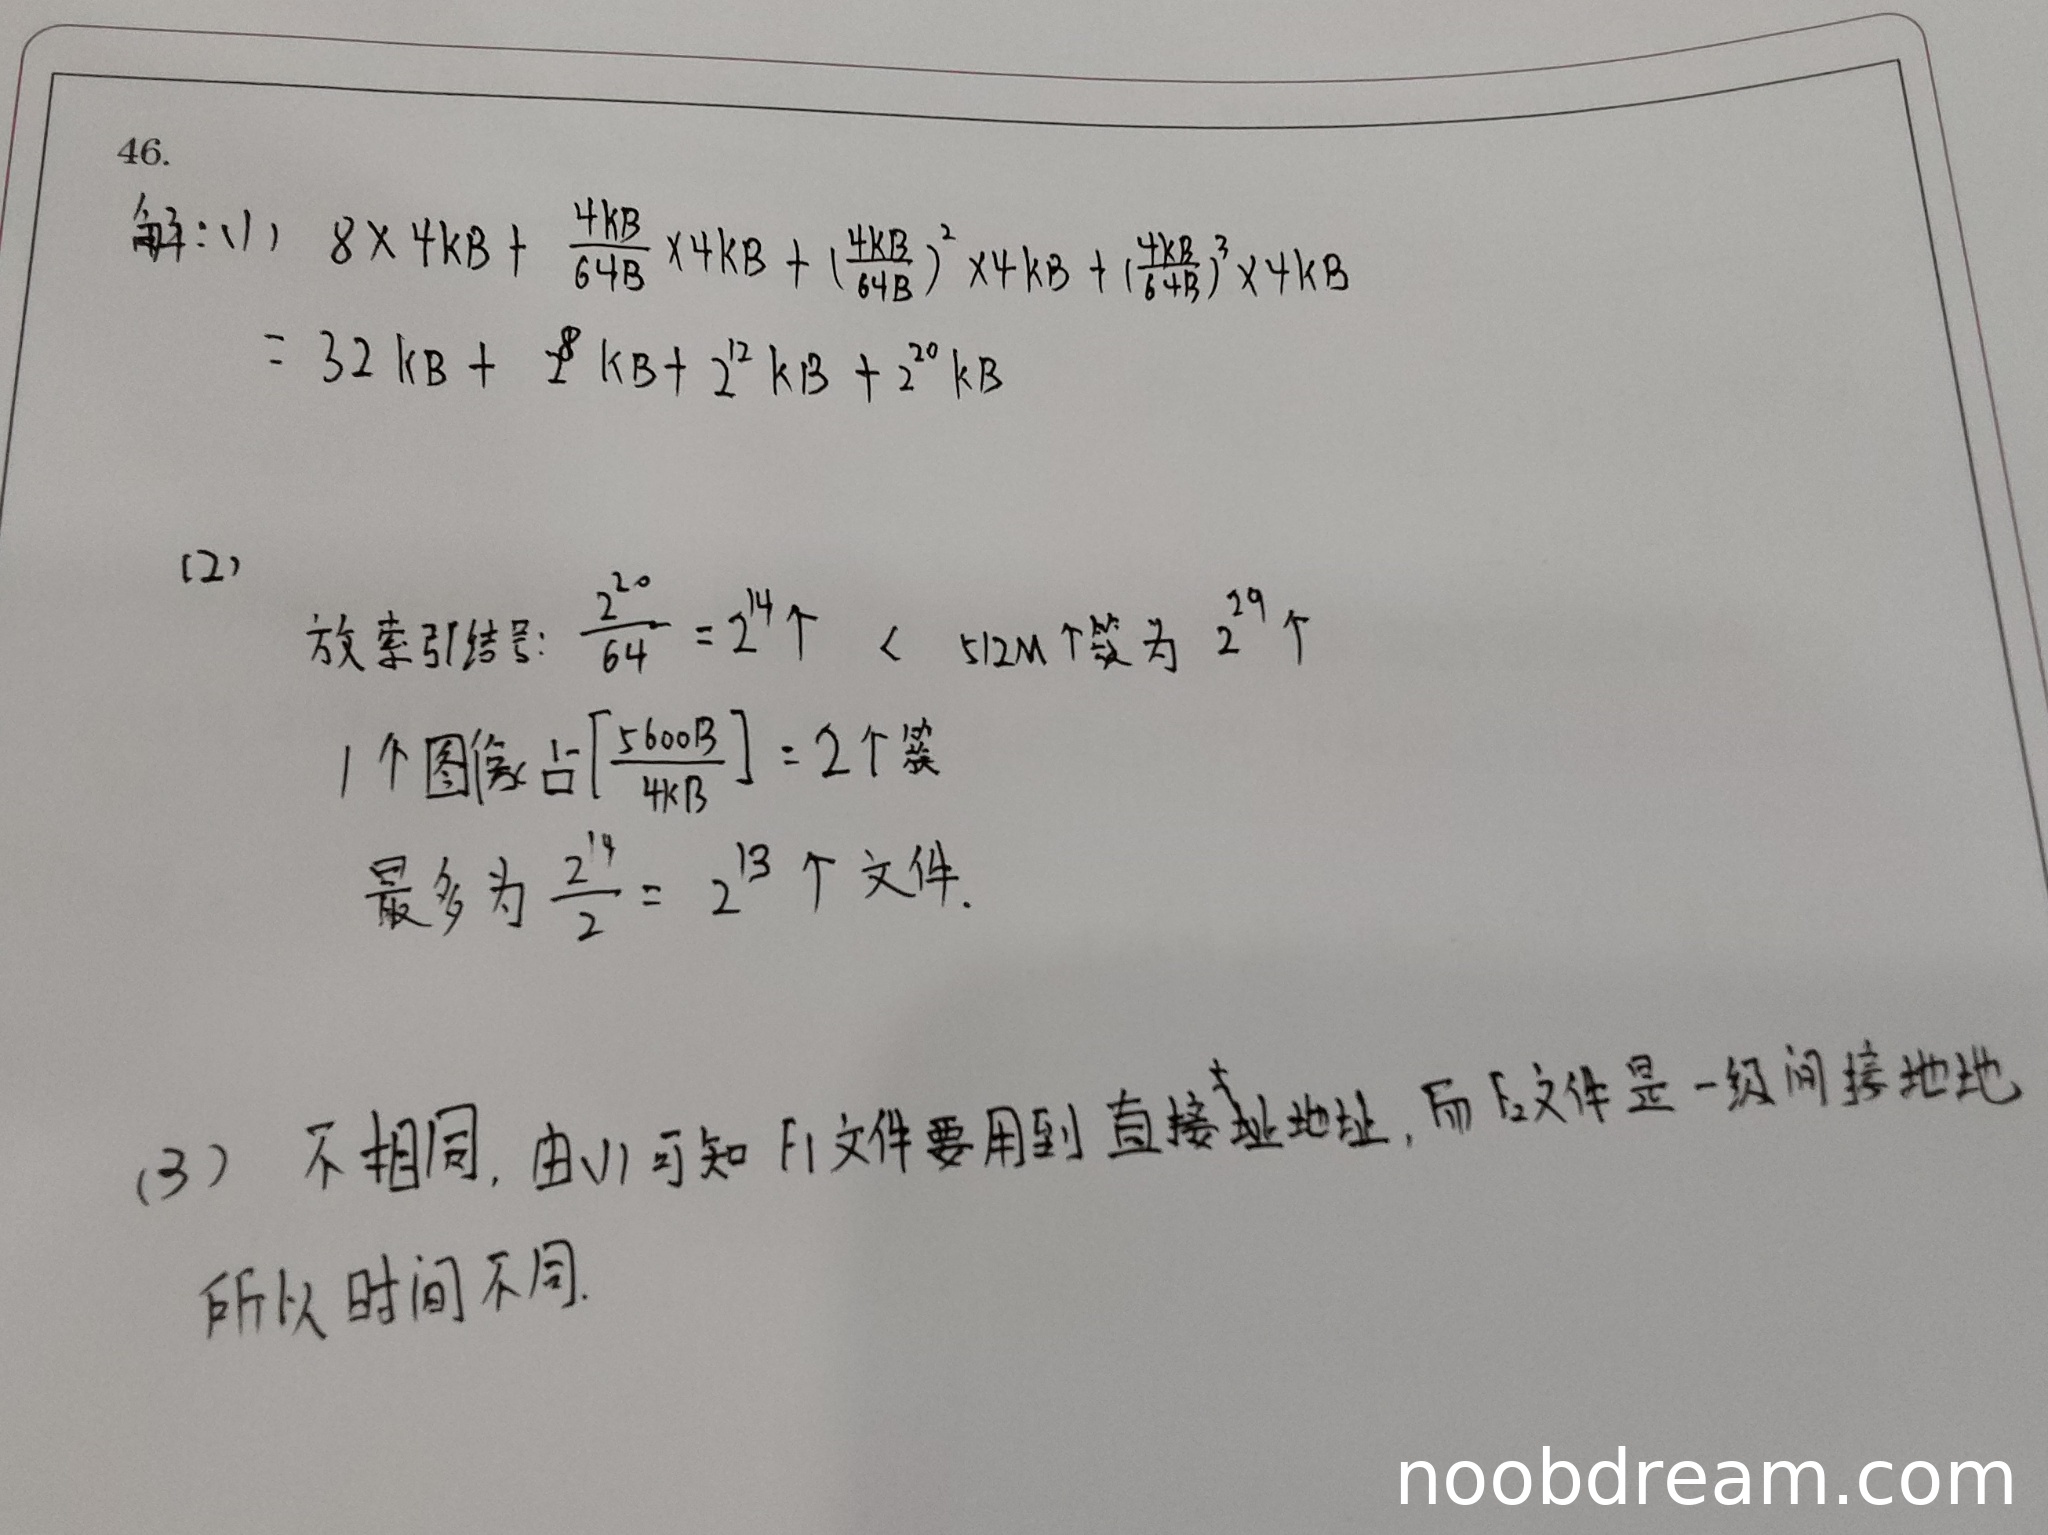 46.
解:(1) 8×4KB + 4KB/64B ×4KB + (4KB/64B)²×4KB + (4KB/64B)³×4KB
= 32KB + 2⁸KB + 2¹²KB + 2²⁰KB
(2)
放索引结号: 2²⁰/64 = 2¹⁴个 < 512M个簇为 2²⁹个
1个图像占⌈5600B/4KB⌉ = 2个簇
最多为 2¹⁴/2 = 2¹³个文件.
(3) 不相同, 由(1)可知 F1文件要用到直接址地址, 而F2文件是一级间接地地
所以时间不同.
noobdream.com